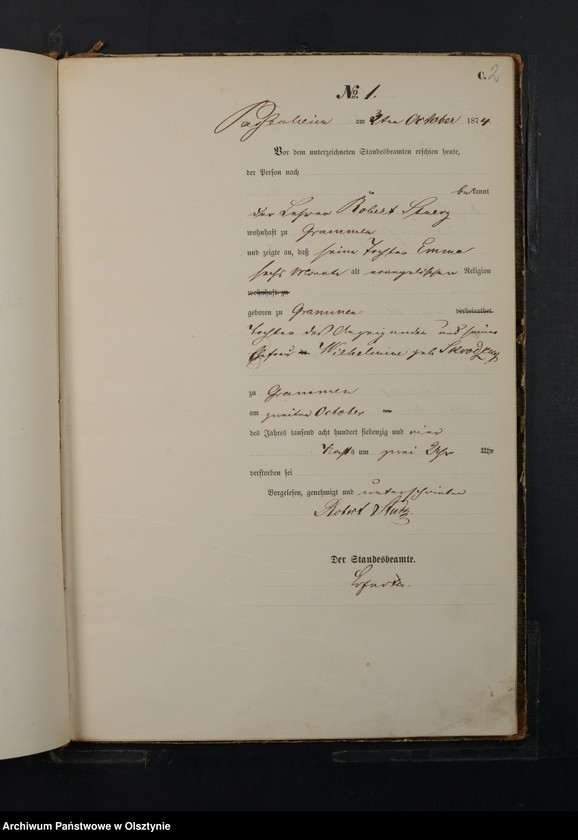 C. 2
№ 1.
Passenheim am 3ten October 1874
Vor dem unterzeichneten Standesbeamten erschien heute,
der Person nach
bekannt
der Lehrer Robert
wohnhaft zu Grammen
und zeigte an, daß seine Tochter Emma
sechs Monate alt evangelischen Religion
wohnhaft zu
geboren zu Grammen verheirathet
Tochter des Anzeigenden und seiner
Ehefrau Wilhelmine geb.
zu Grammen
am zweiten October
des Jahres tausend acht hundert siebenzig und vier
Nachts um zwei Uhr Uhr
verstorben sei
Vorgelesen, genehmigt und unterschrieben
Robert
Der Standesbeamte.
Archiwum Państwowe w Olsztynie